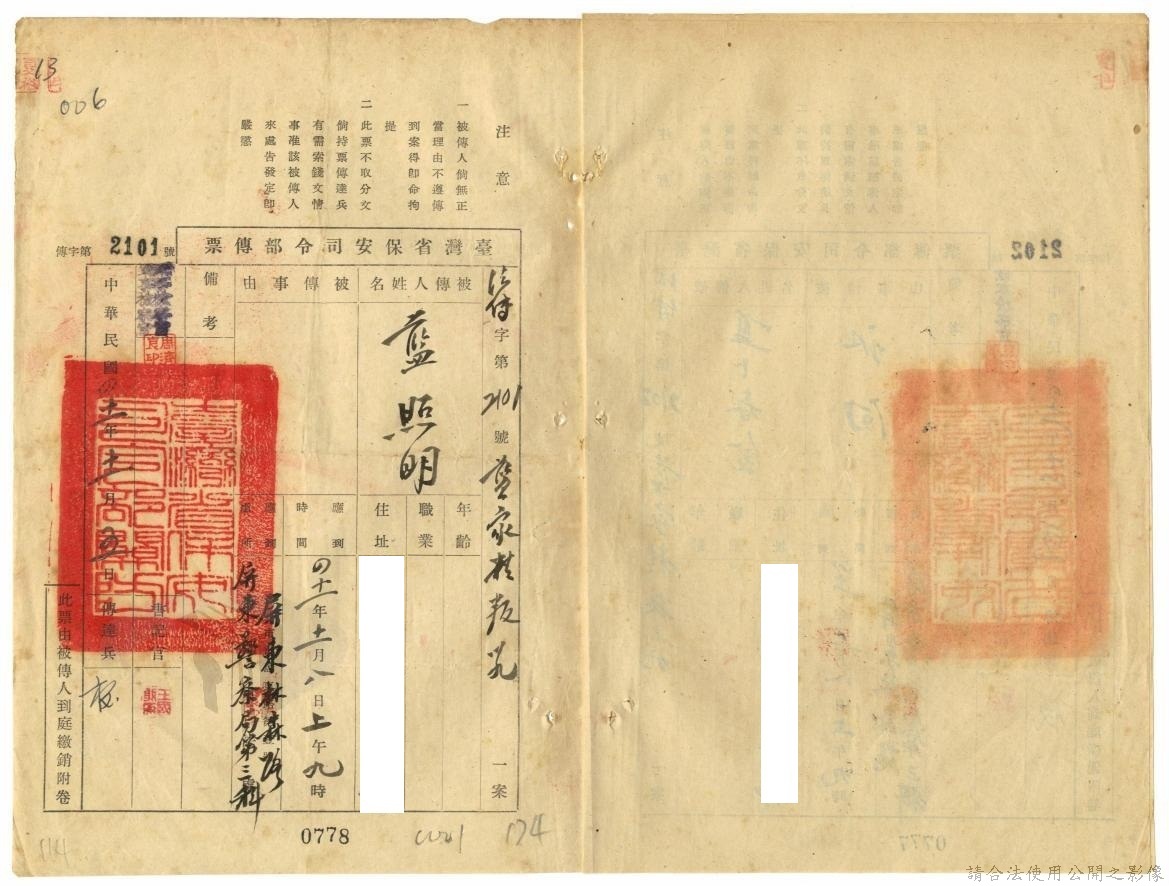 13
006
注意
一 被傳人倘無正
當理由不遵傳
到案得卽命拘
提
二 此票不取分文
倘持票傳達兵
有需索錢文情
事准該被傳人
來處告發定卽
嚴懲
臺灣省保安司令部傳票
傳字第2101號
字第2101號藍家榮叛乱一案
被傳人姓名
藍照明
年齡
職業
住址
被傳事由
應到時間
四十一年十一月八日上午九時
應到處所
屏東林森路
屏東警察局第三科
備考
書記官
中華民國四十一年十一月五日
傳達兵
此票由被傳人到庭繳銷附卷
臺灣省保安司令部關防
0778
174
114
2102
0777
請合法使用公開之影像